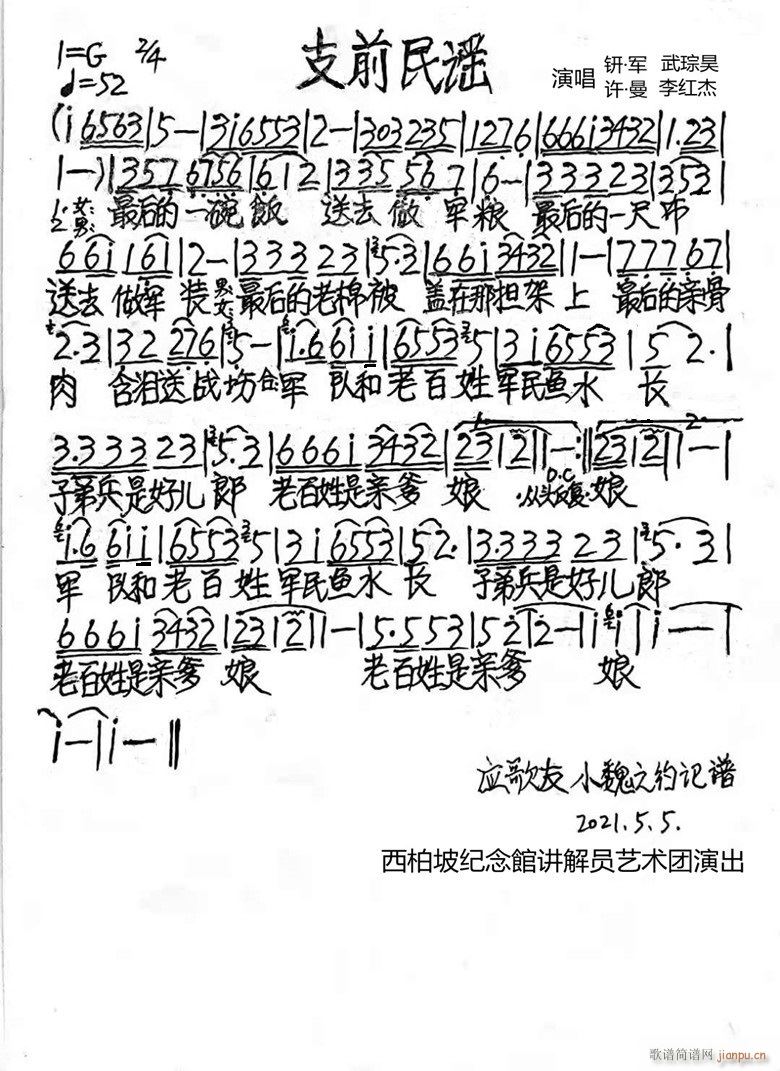 支前民谣
1=G 2/4
♩=52
演唱 钘·军 武琮昊
许·曼 李红杰
(i 6563|5-|3i6553|2-|303235|1276|666i3432|1.23|
1-)|357 6756|612|335 567|6-|33323|353|
1.女: 2.男: 最后的一碗飯 送去做 军粮 最后的一尺布
66i 161|2-|333 23|5.3|66i 3432|1-|777 67|
送去 做军 装 男: 女: 最后的老棉被 盖在那担架 上 最后的亲骨
2.3|32 276|5-|i.6 6ii|6553 5|3i6553|5 2.|
肉 含泪送战场 合: 军 队和老百姓 军民鱼水 长
3.333 23|5.3|666i 3432|23 12|1-:‖23 12|1-|
子弟兵是好儿郎 老百姓是亲爹 娘 D.C 从头反复 娘
i.6 6ii|6553 5|3i6553|52.|3.333 23|5.3|
军 队和老百姓 军民鱼水 长 子弟兵是好儿郎
666i 3432|23 12|1-|5.553|52|2-|ii|i-|
老百姓是亲爹 娘 老百姓是亲爹 娘
i-|i-‖
应歌友小魏之约记谱
2021.5.5.
西柏坡纪念館讲解员艺术团演出
歌谱简谱网 jianpu.cn